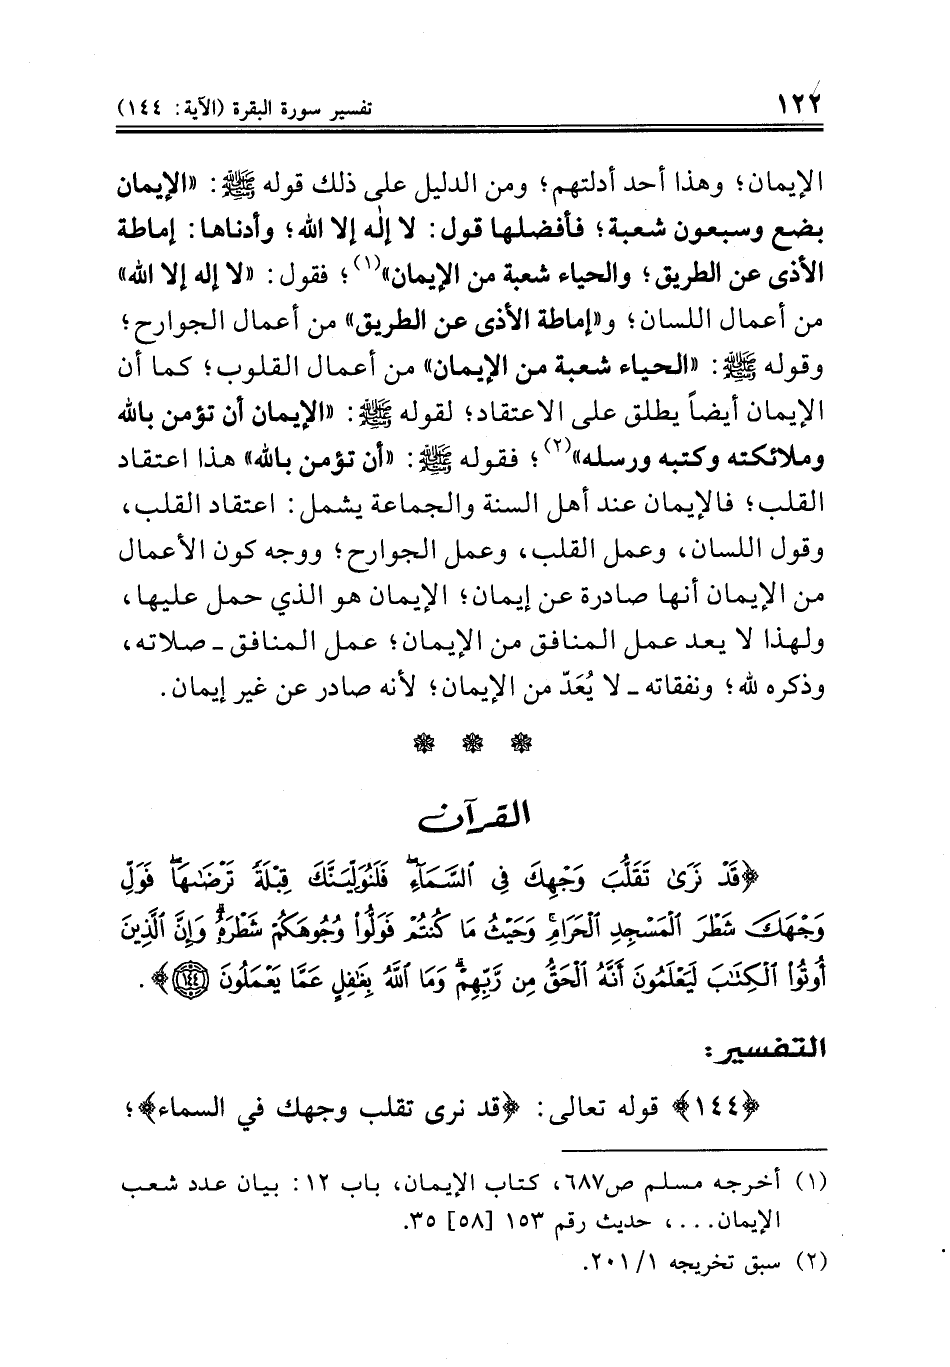 ١٢٢ تفسير سورة البقرة (الآية: ١٤٤)
الإيمان؛ وهذا أحد أدلتهم؛ ومن الدليل على ذلك قوله ﷺ: «الإيمان
بضع وسبعون شعبة؛ فأفضلها قول: لا إلٰه إلا الله؛ وأدناها: إماطة
الأذى عن الطريق؛ والحياء شعبة من الإيمان»(١)؛ فقول: «لا إله إلا الله»
من أعمال اللسان؛ و«إماطة الأذى عن الطريق» من أعمال الجوارح؛
وقوله ﷺ: «الحياء شعبة من الإيمان» من أعمال القلوب؛ كما أن
الإيمان أيضاً يطلق على الاعتقاد؛ لقوله ﷺ: «الإيمان أن تؤمن بالله
وملائكته وكتبه ورسله»(٢)؛ فقوله ﷺ: «أن تؤمن بالله» هذا اعتقاد
القلب؛ فالإيمان عند أهل السنة والجماعة يشمل: اعتقاد القلب،
وقول اللسان، وعمل القلب، وعمل الجوارح؛ ووجه كون الأعمال
من الإيمان أنها صادرة عن إيمان؛ الإيمان هو الذي حمل عليها،
ولهذا لا يعد عمل المنافق من الإيمان؛ عمل المنافق ـ صلاته،
وذكره لله؛ ونفقاته ـ لا يُعَدّ من الإيمان؛ لأنه صادر عن غير إيمان.
القرآن
﴿قَدْ نَرَىٰ تَقَلُّبَ وَجْهِكَ فِي ٱلسَّمَآءِۖ فَلَنُوَلِّيَنَّكَ قِبْلَةً تَرْضَىٰهَاۚ فَوَلِّ
وَجْهَكَ شَطْرَ ٱلْمَسْجِدِ ٱلْحَرَامِۚ وَحَيْثُ مَا كُنتُمْ فَوَلُّوا۟ وُجُوهَكُمْ شَطْرَهُۥۗ وَإِنَّ ٱلَّذِينَ
أُوتُوا۟ ٱلْكِتَٰبَ لَيَعْلَمُونَ أَنَّهُ ٱلْحَقُّ مِن رَّبِّهِمْۗ وَمَا ٱللَّهُ بِغَٰفِلٍ عَمَّا يَعْمَلُونَ ١٤٤﴾.
التفسير:
﴿١٤٤﴾ قوله تعالى: ﴿قد نرى تقلب وجهك في السماء﴾؛
(١) أخرجه مسلم ص٦٨٧، كتاب الإيمان، باب ١٢: بيان عدد شعب
الإيمان...، حديث رقم ١٥٣ [٥٨] ٣٥.
(٢) سبق تخريجه ٢٠١/١.